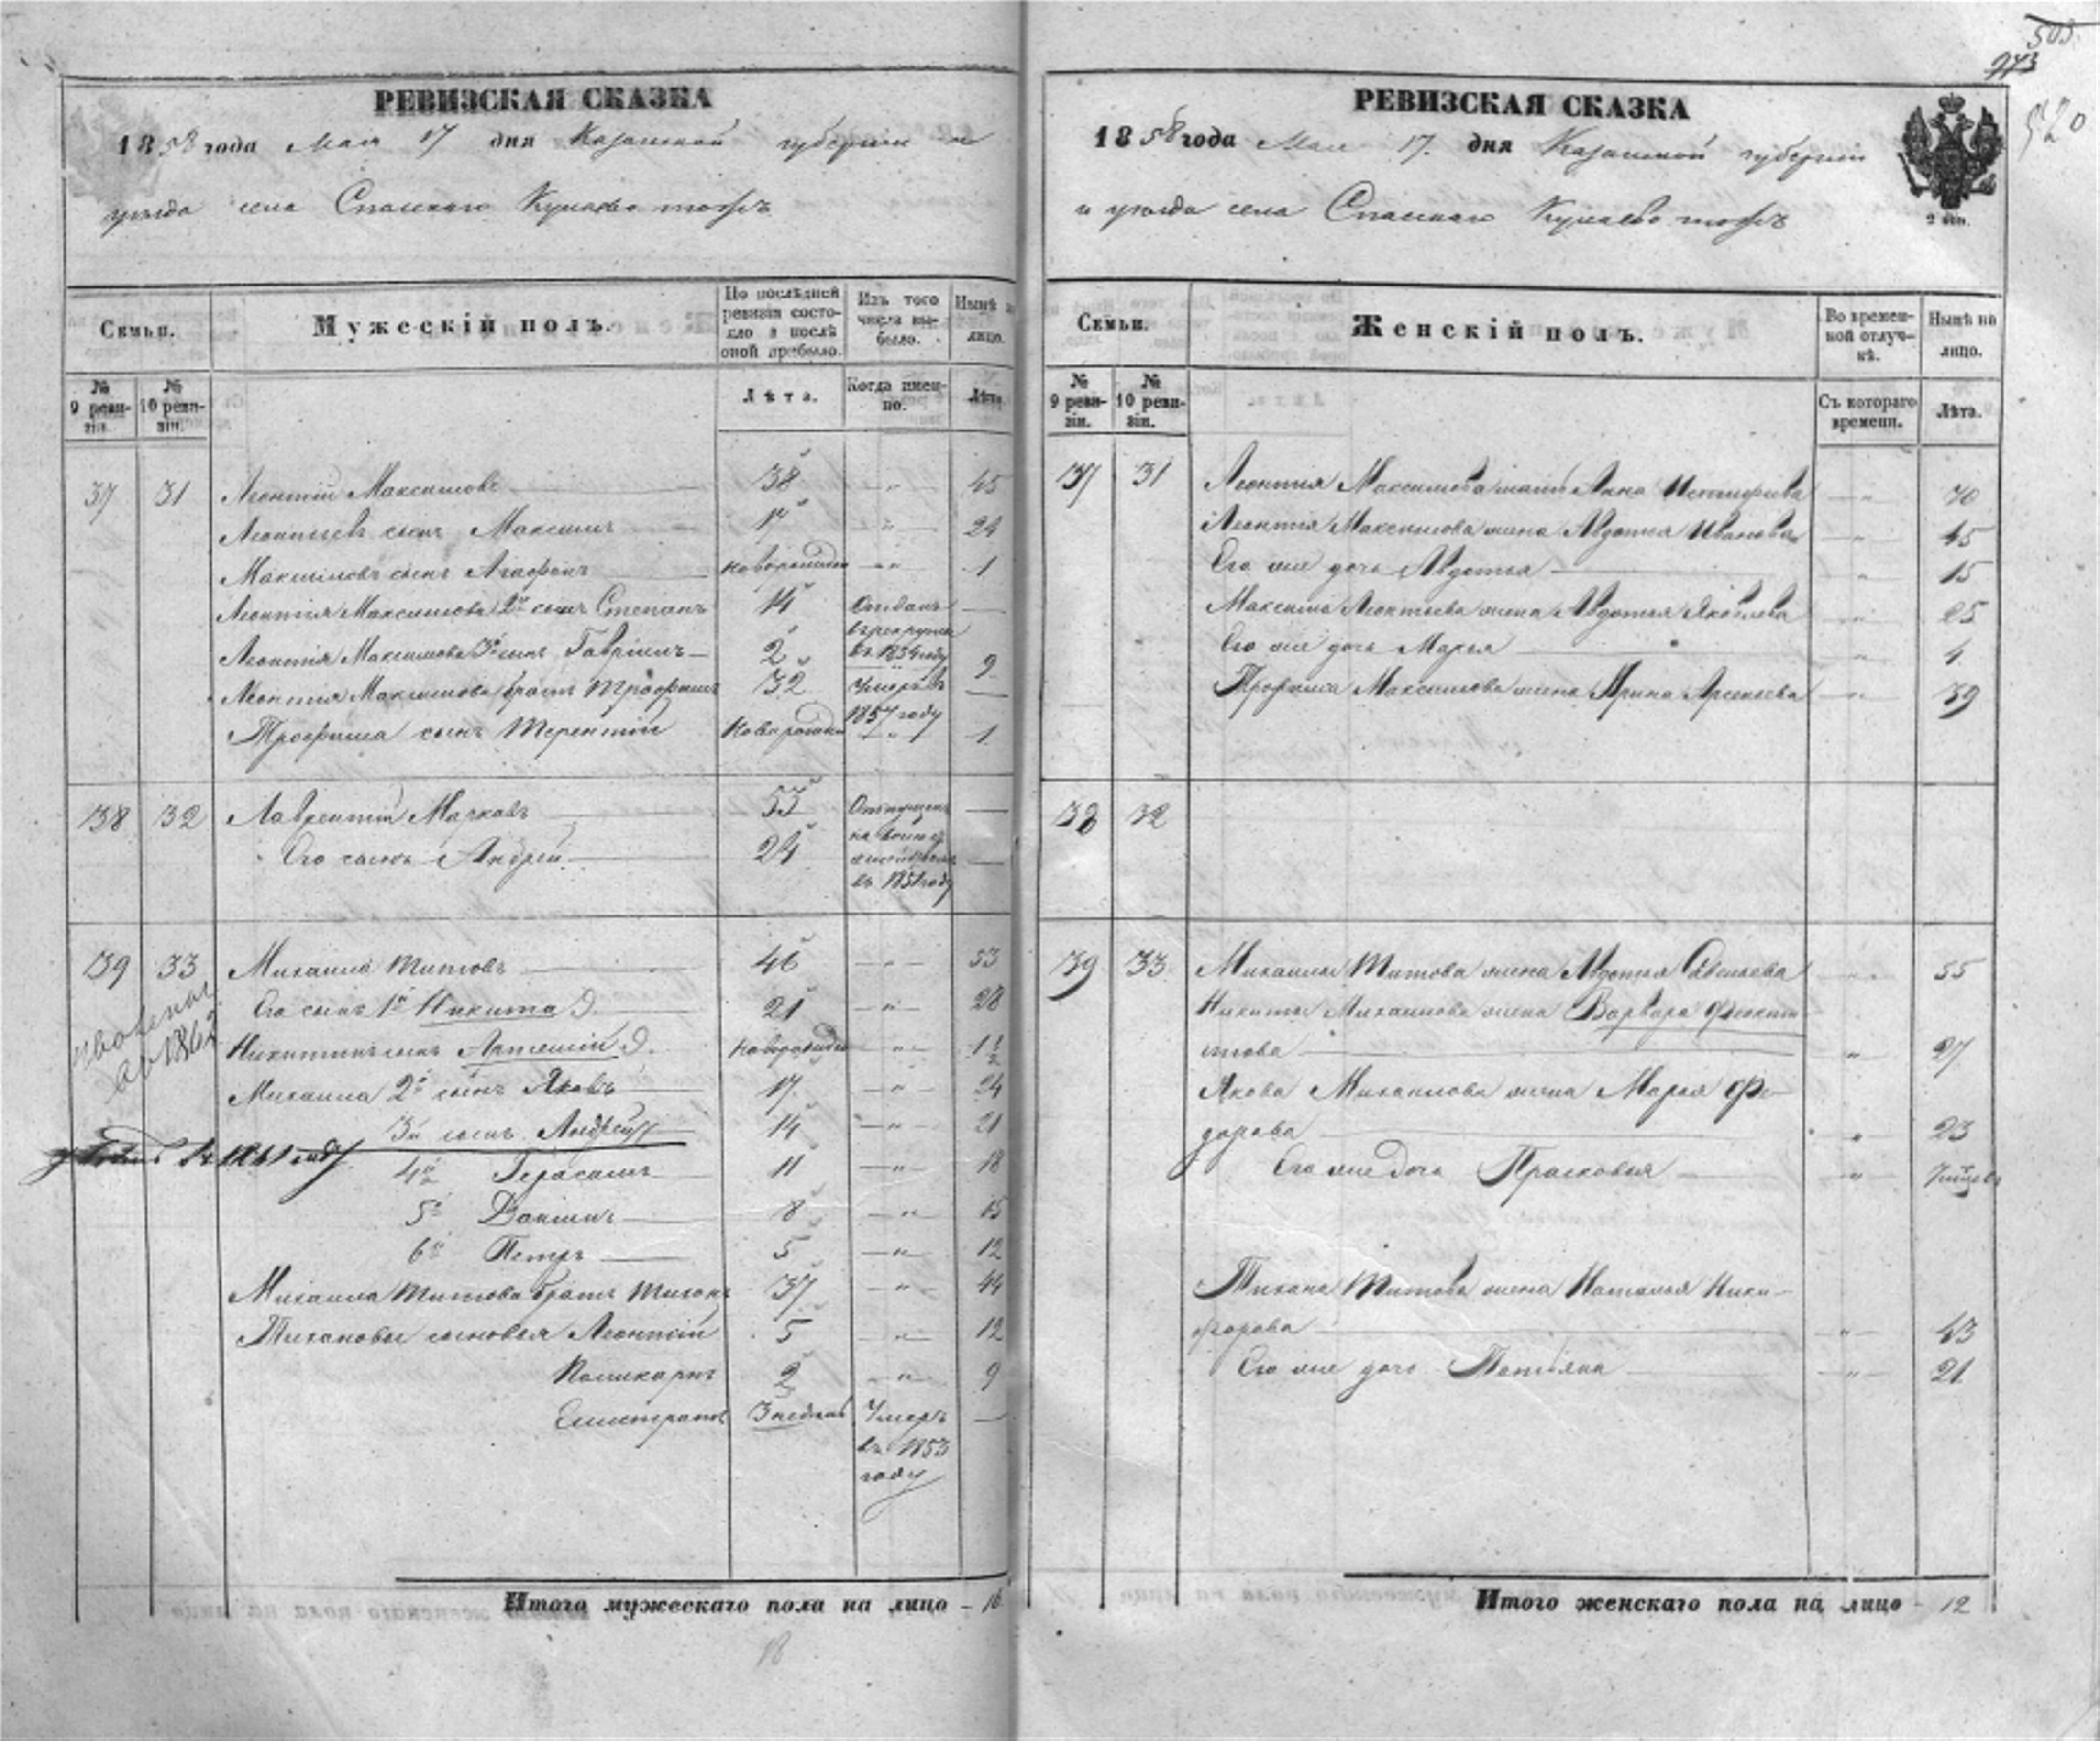 503.
973
520
РЕВИЗСКАЯ СКАЗКА
1858 года Мая 17 дня Казанской губерніи и
уѣзда села Спаскаго Кулаево тожъ
Семьи.
Мужескій полъ.
По послѣдней ревизіи состояло и послѣ оной прибыло.
Изъ того числа выбыло.
Нынѣ на лицо.
№ 9 ревизіи.
№ 10 ревизіи.
Лѣта.
Когда именно.
Лѣта.
37 31 Леонтій Максимовъ 38 „ 45
Леонтьевъ сынъ Максимъ 17 „ 24
Максимовъ сынъ Агафонъ новорожден „ 1
Леонтія Максимова 2й сынъ Степанъ 14 Отданъ
въ рекруты
Леонтія Максимова 3й сынъ Гаврилъ 2 въ 1854 году 9
Леонтія Максимова братъ Трофимъ 32 Умеръ въ
1857 году
Трофима сынъ Терентій Новорожден „ 1
38 32 Лаврентій Марковъ 53 Отпущены
на
Его сынъ Андрей 24
въ 1851 году
39 33 Михаила Титовъ 46 „ 53
Его сынъ 1й Никита 21 „ 28
Никитинъ сынъ Артемій новорожден „ 1 1/2
Михаила 2й сынъ Яковъ 17 „ 24
3й сынъ Андрей 14 „ 21
въ 1861 году
4й Герасимъ 11 „ 18
5й 8 „ 15
6й Петръ 5 „ 12
Михаила Титова братъ Тихонъ 37 „ 44
Тихановы сыновья Леонтій 5 „ 12
Поликарпъ 2 „ 9
Елистратъ 3 недель Умеръ
въ 1853
году
Итого мужескаго пола на лицо – 16
18
РЕВИЗСКАЯ СКАЗКА
1858 года Мая 17. дня Казанской губерніи
и уѣзда села Спаскаго Кулаево тожъ
2 коп.
Семьи.
Женскій полъ.
Во временной отлучкѣ.
Нынѣ на лицо.
№ 9 ревизіи.
№ 10 ревизіи.
Съ котораго времени.
Лѣта.
37 31 Леонтія Максимова мать Анна „ 70
Леонтія Максимова жена Авдотья Иванова „ 45
Его же дочь Авдотья „ 15
Максима Леонтьева жена Авдотья Яковлева „ 25
Его же дочь Марья „ 4
Трофима Максимова жена Арина Арсеньева „ 39
38 32
39 33 Михаилы Титова жена Авдотья Савельева „ 55
Никиты Михаилова жена Варвара Феокти-
стова „ 27
Якова Михаилова жена Марья Фе-
дорова „ 23
Его же дочь Прасковья „
Тихана Титова жена Наталья Ники-
форова „ 43
Его же дочь Татьяна „ 21
Итого женскаго пола на лицо – 12